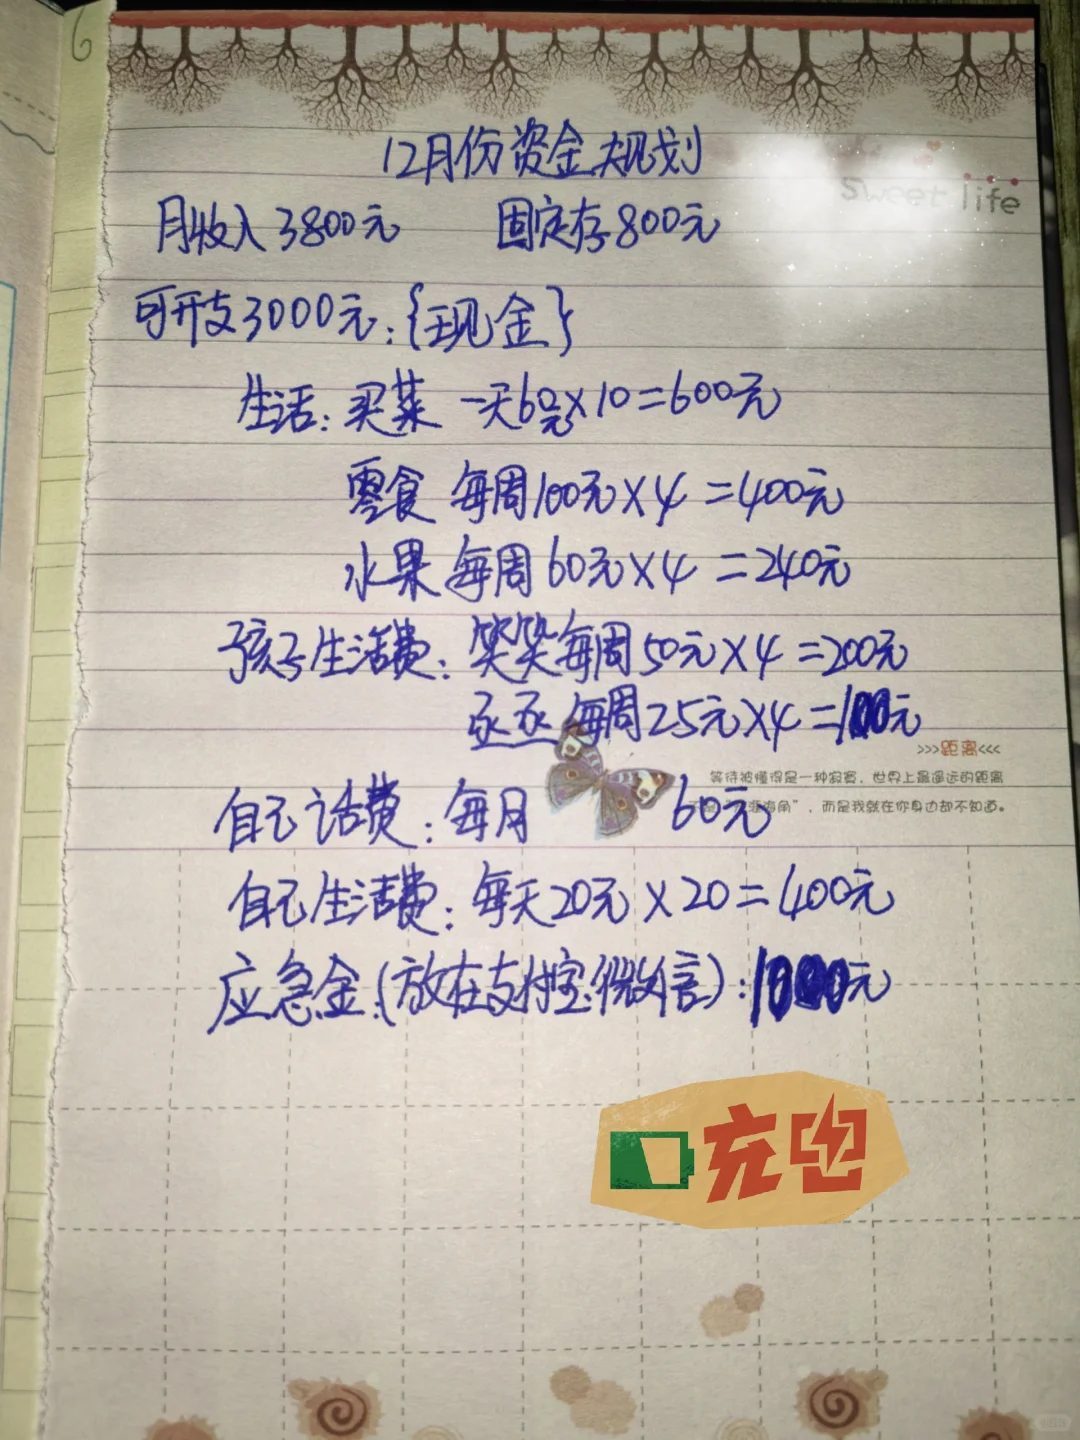 6
12月份资金规划
Sweet life
月收入3800元 固定存800元
可开支3000元:{现金}
生活:买菜 一天60元×10=600元
零食 每周100元×4=400元
水果 每周60元×4=240元
孩子生活费:笑笑每周50元×4=200元
丞丞每周25元×4=100元
>>>距离<<<
等待被懂得是一种寂寞,世界上最遥远的距离
海角”,而是我就在你身边却不知道。
自己话费:每月 60元
自己生活费:每天20元×20=400元
应急金:(放在支付宝微信):1000元
充电